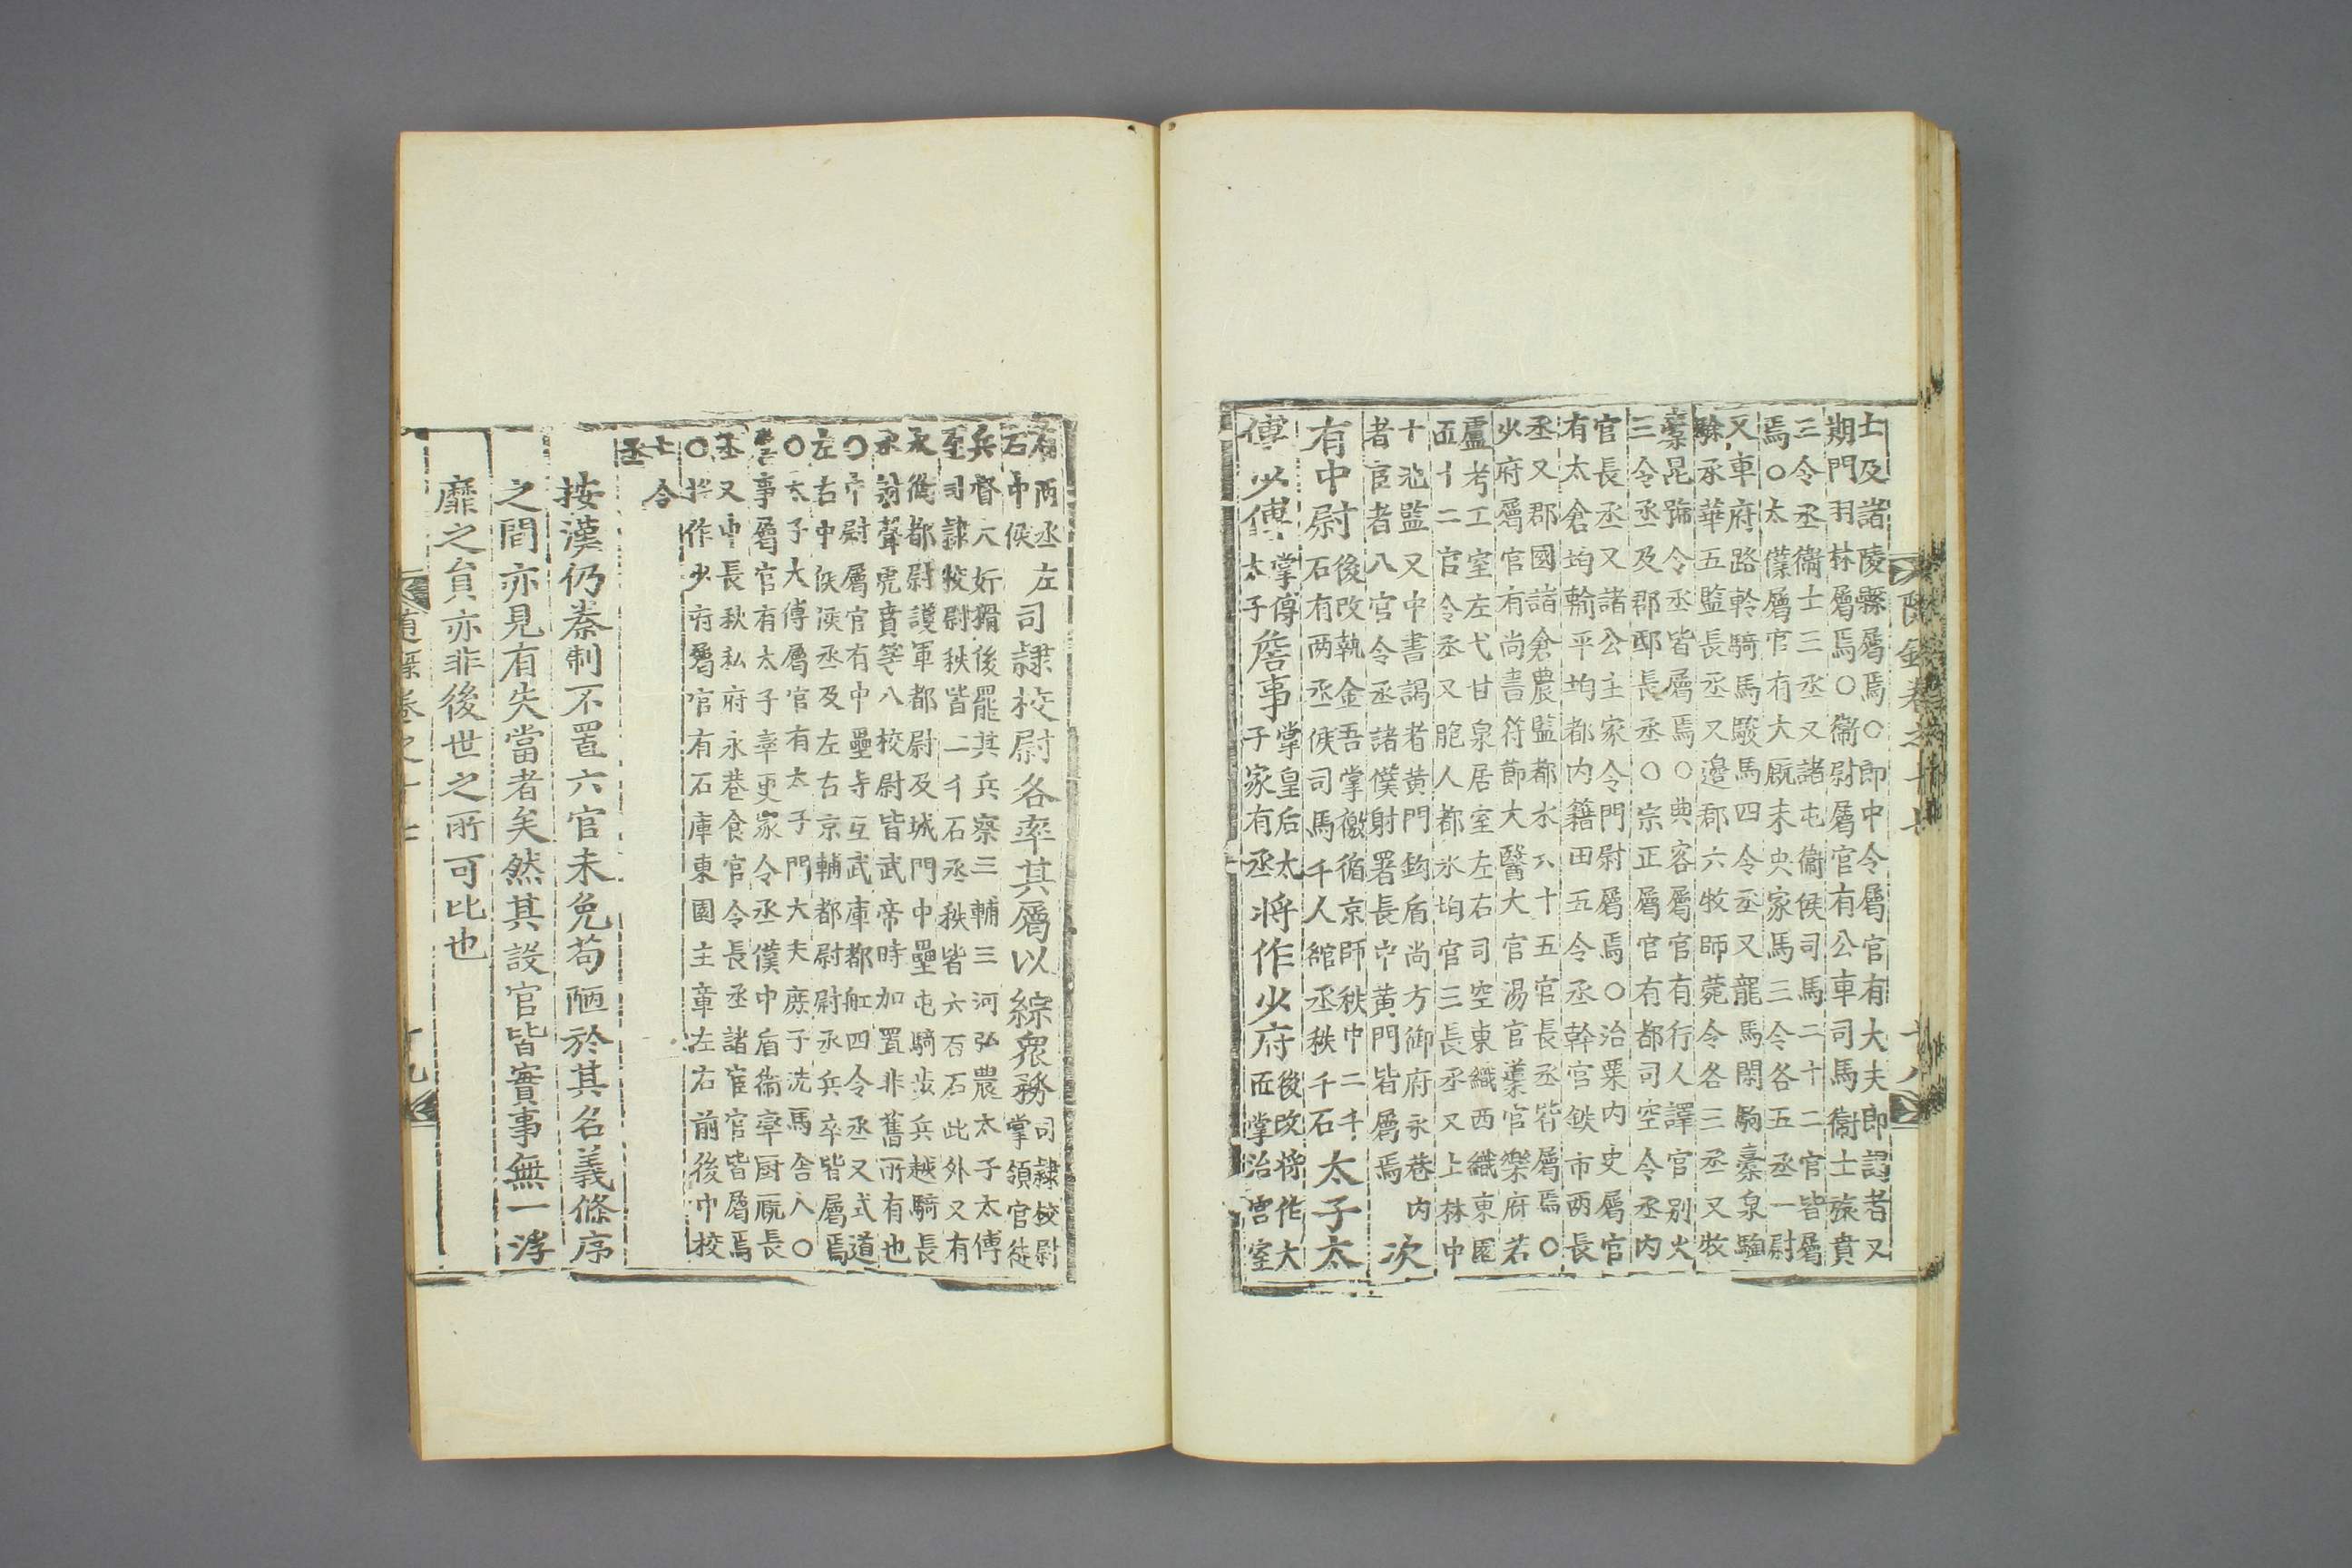 士及諸陵縣屬焉○郎中令屬官有大夫郎謁者又
期門羽林屬焉○衞尉屬官有公車司馬衞士旅賁
三令丞衞士三丞又諸屯衞候司馬二十二官皆屬
焉○太僕屬官有大廐未央家馬三令各五丞一尉
又車府路軨騎馬駿馬四令丞又龍馬閑駒橐泉騊
駼承華五監長丞又邊郡六牧師菀令各三丞又牧
橐昆蹏令丞皆屬焉○典客屬官有行人譯官別火
三令丞及郡邸長丞○宗正屬官有都司空令丞內
官長丞又諸公主家令門尉屬焉○治粟內史屬官
有太倉均輸平均都內籍田五令丞幹官鉄市兩長
丞又郡國諸倉農監都水六十五官長丞皆屬焉○
少府屬官有尚書符節大醫大官湯官藥官樂府若
盧考工室左弋甘泉居室左右司空東織西織東園
匠十二官令丞又胞人都水均官三長丞又上林中
十池監又中書謁者黃門鉤盾尚方御府永巷內
者宦者八官令丞諸僕射署長中黃門皆屬焉
次
有中尉
後改執金吾掌徼循京師秩中二千
石有兩丞候司馬千人綰丞秩千石
太子太
傅少傅
掌傅
太子
詹事
掌皇后太
子家有丞
將作少府
後改將作大
匠掌治宮室
有兩丞左
右中候
司隸校尉各率其屬以綜衆務
司隸校尉
掌領官徒
兵督大奸猾後罷其兵察三輔三河弘農太子太傅
至司隸校尉秩皆二千石丞秩皆六百石此外又有
水衡都尉護軍都尉及城門中壘屯騎步兵越騎長
水射聲虎賁等八校尉皆武帝時加置非舊所有也
○中尉屬官有中壘寺互武庫都舡四令丞又式道
左右中候候丞及左右京輔都尉尉丞兵卒皆屬焉
○太子大傅屬官有太子門大夫庶子洗馬舍人○
詹事屬官有太子率更家令丞僕中盾衞率厨廐長
丞又中長秋私府永巷食官令長丞諸宦官皆屬焉
○將作少府屬官有石庫東園主章左右前後中校
七令
丞
按漢仍秦制不置六官未免苟陋於其名義條序
之間亦見有失當者矣然其設官皆實事無一浮
靡之貟亦非後世之所可比也